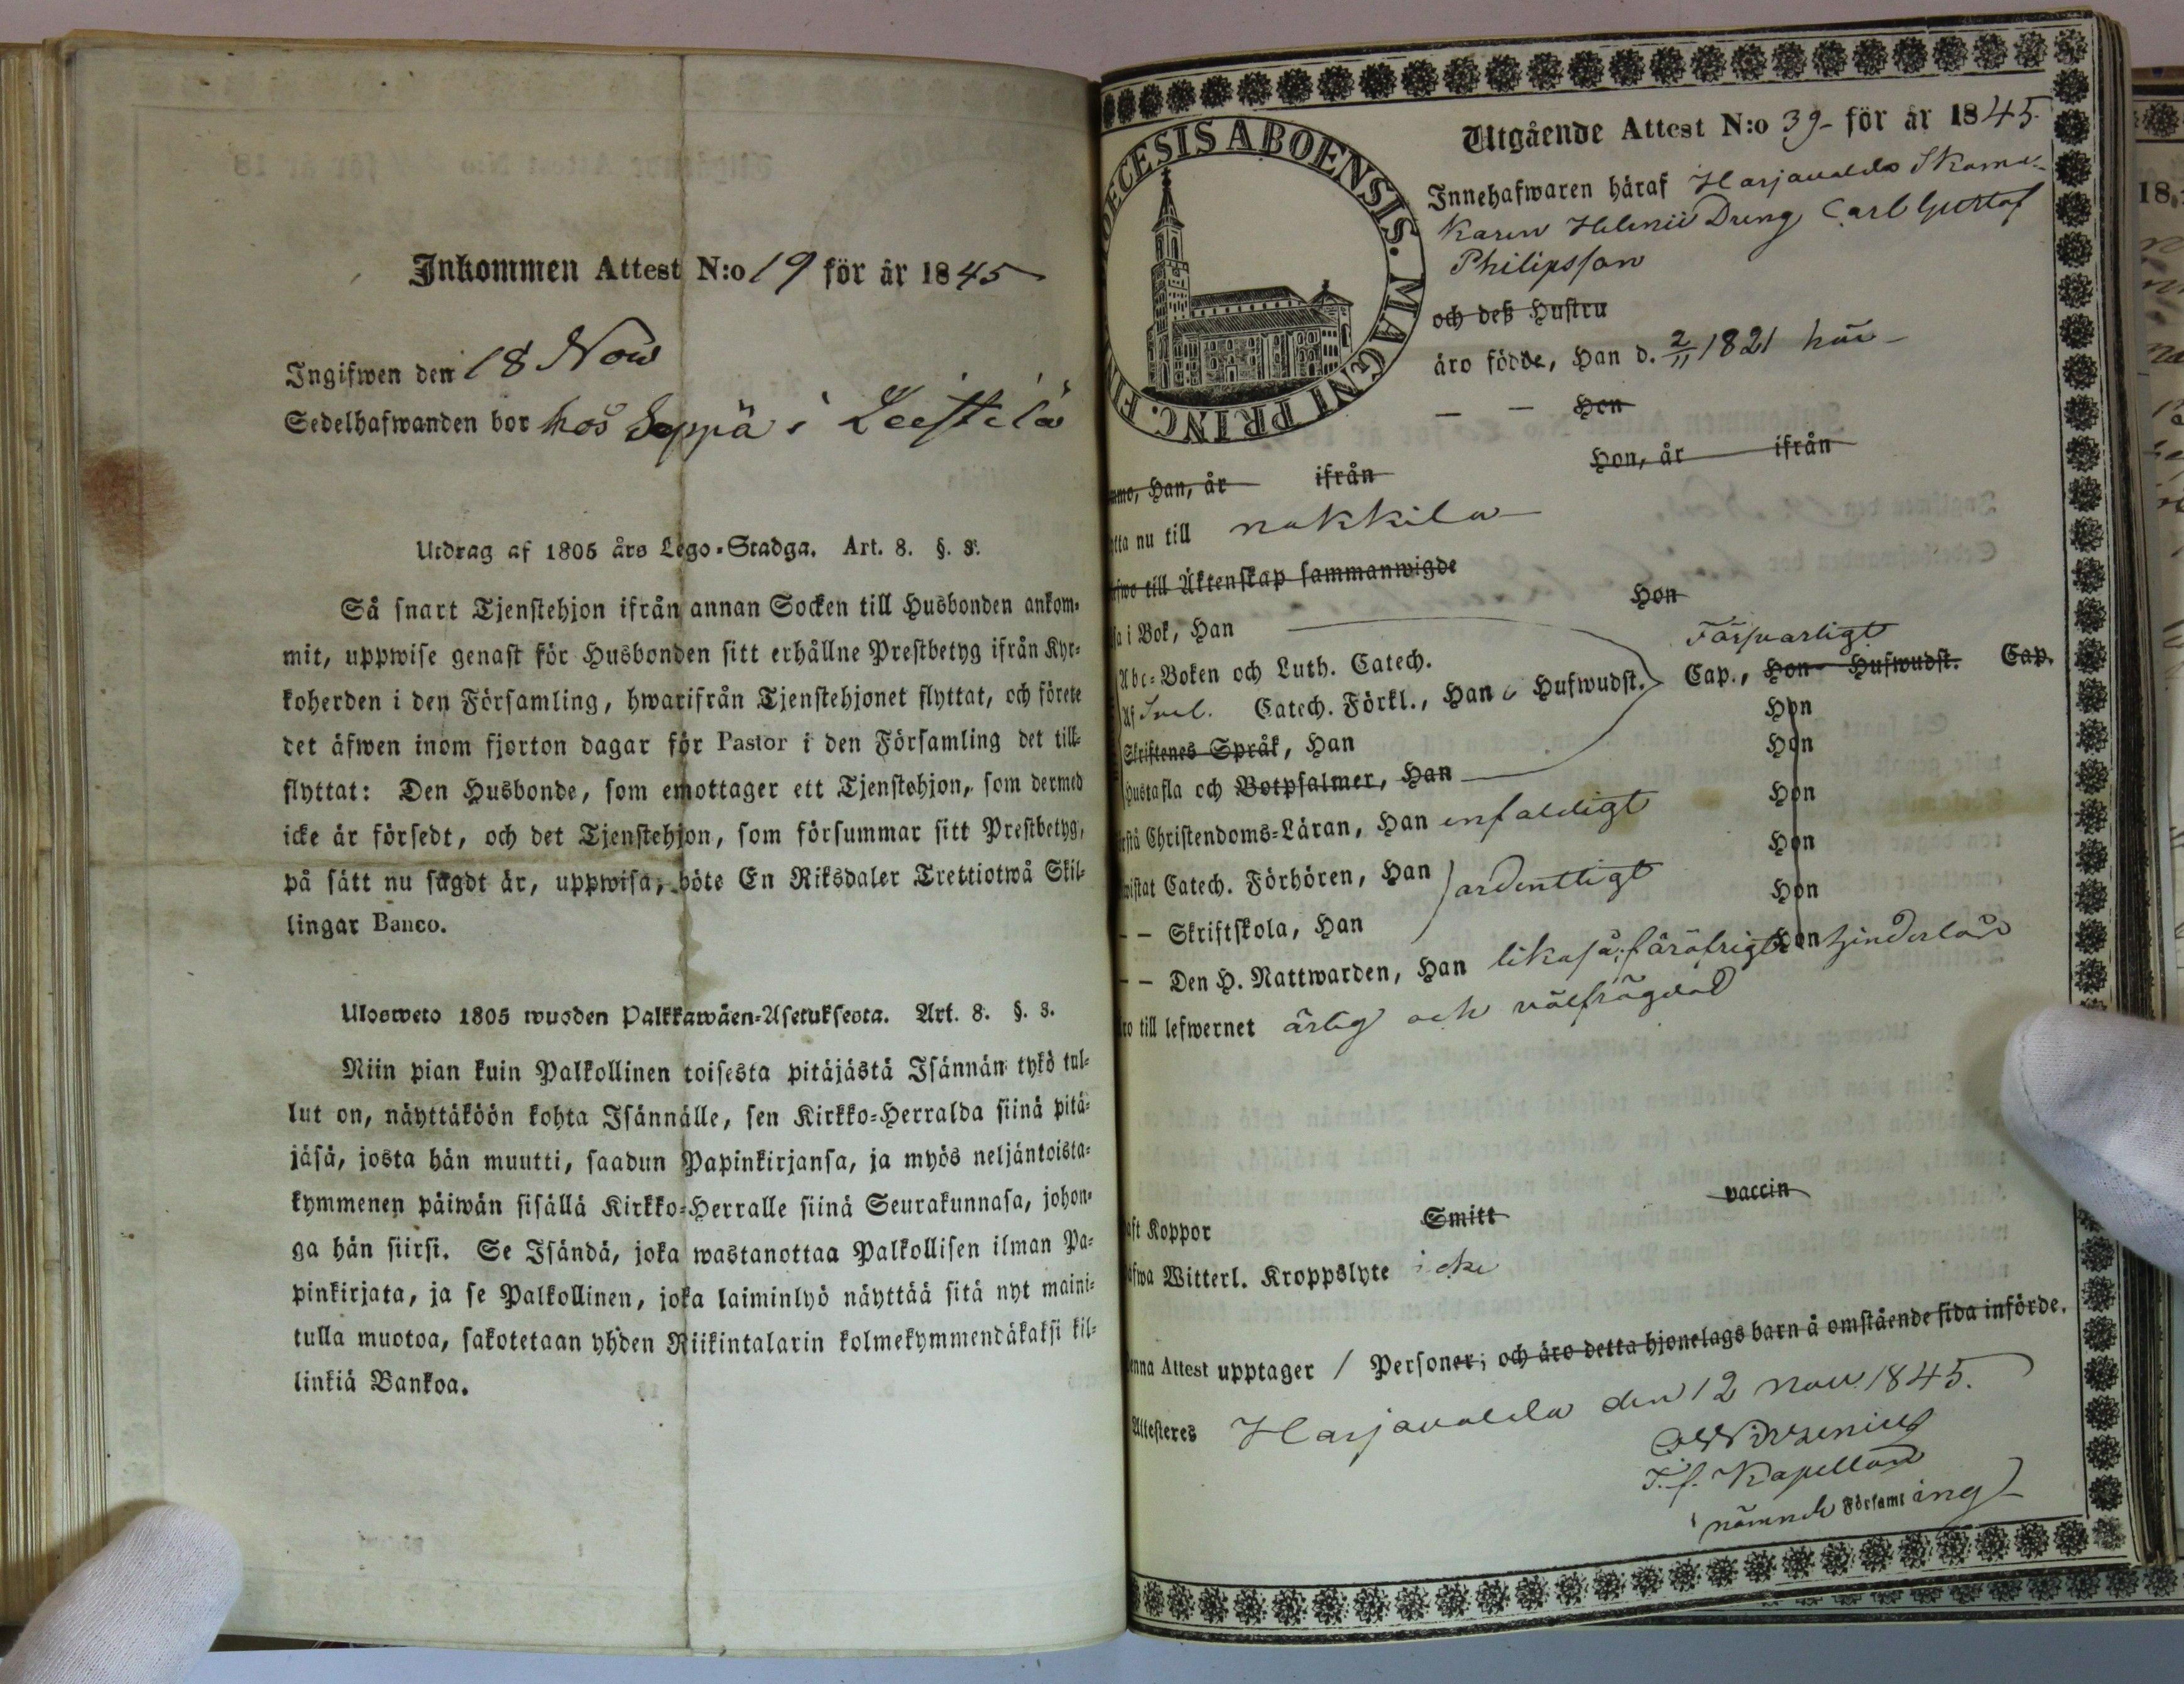 Inkommen Attest N:o 19 för år 1845
Ingifwen den 18 Nov
Sedelhafwanden bor hos Seppä i Leistilä
Utdrag af 1805 års Lego-Stadga. Art. 8. §. 8.
Så snart Tjenstehjon ifrån annan Socken till Husbonden ankom-
mit, uppwise genast för Husbonden sitt erhållne Prestbetyg ifrån Kyr-
koherden i den Församling, hwarifrån Tjenstehjonet flyttat, och förete
det äfwen inom fjorton dagar för Pastor i den Församling det till-
flyttat: Den Husbonde, som emottager ett Tjenstehjon, som dermed
icke är försedt, och det Tjenstehjon, som försummar sitt Prestbetyg,
på sätt nu sagdt är, uppwisa, böte En Riksdaler Trettiotwå Skil-
lingar Banco.
Ulosweto 1805 wuoden Palkkawäen-Asetuksesta. Art. 8. §. 8.
Niin pian kuin Palkollinen toisesta pitäjästä Isännän tykö tul-
lut on, näyttäköön kohta Isännälle, sen Kirkko-Herralda siinä pitä-
jäsä, josta hän muutti, saadun Papinkirjansa, ja myös neljäntoista-
kymmenen päiwän sisällä Kirkko-Herralle siinä Seurakunnasa, johon-
ga hän siirsi. Se Isändä, joka wastanottaa Palkollisen ilman Pa-
pinkirjata, ja se Palkollinen, joka laiminlyö näyttää sitä nyt maini-
tulla muotoa, sakotetaan yhden Riikintalarin kolmekymmendäkaksi kil-
linkiä Bankoa.
ECESIS ABOENSIS. MAGNI PRINC. FIN
Utgående Attest N:o 39 för år 1845.
Innehafwaren häraf Harjavalda Skoma-
Karen Helenii Dreng Carl Gustaf
Philipsson
och deß Hustru
äro födde, Han d. 2/11 1821 här
— — Hon
mmo, Han, år ifrån Hon, år ifrån
tta nu till nakkila
fwo till Äktenskap sammanwigde
sa i Bok, Han Hon
Abc-Boken och Luth. Catech. Försvarligt
Af Svel. Catech. Förkl., Han Hufwudst. Cap., Hon Hufwudst. Cap.
Skriftenes Språk, Han Hon
Hustafla och Botpsalmer, Han Hon
estå Christendoms-Läran, Han enfaldigt Hon
wistat Catech. Förhören, Han ordentligt Hon
— — Skriftskola, Han Hon
— — Den H. Nattwarden, Han likaså; föröfrigt Hon hinderlös
ro till lefwernet ärlig och välfrägdad
aft Koppor Smitt vaccin
afwa Witterl. Kroppslyte icke
enna Attest upptager 1 Personer; och äro detta hjonelags barn å omstående sida införde.
Attesteres Harjavalda den 12 nov. 1845.
T.f. Kapellan
i nämnde Församl ing